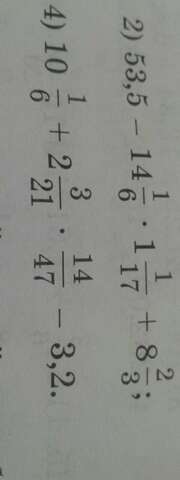 2) 53,5 − 14 1/6 · 1 1/17 + 8 2/3;
4) 10 1/6 + 2 3/21 · 14/47 − 3,2.